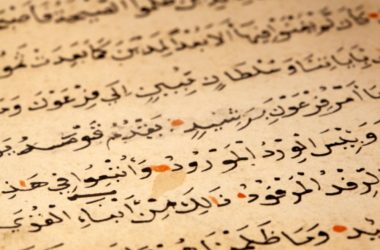 ظَلَمُوا الصَّيْحَةُ فَأَصْبَ
كَأَنْ لَمْ يَغْنَوْا فِيهَا أَلَا بُعْدًا لِمَدْيَنَ كَمَا بَعِدَتْ ثَمُو
بِآيَاتِنَا وَسُلْطَانٍ مُبِينٍ إِلَى فِرْعَوْنَ وَمَ
أَمْرُ فِرْعَوْنَ بِرَشِيدٍ يَقْدُمُ قَوْمَهُ يَو
وَبِئْسَ الْوِرْدُ الْمَوْرُودُ وَأُتْبِعُوا فِي هَذِ
الرِّفْدُ الْمَرْفُودُ ذَالِكَ مِنْ أَنْبَاءِ الْقُرَى
يدٌ وَمَا ظَلَمْنَ